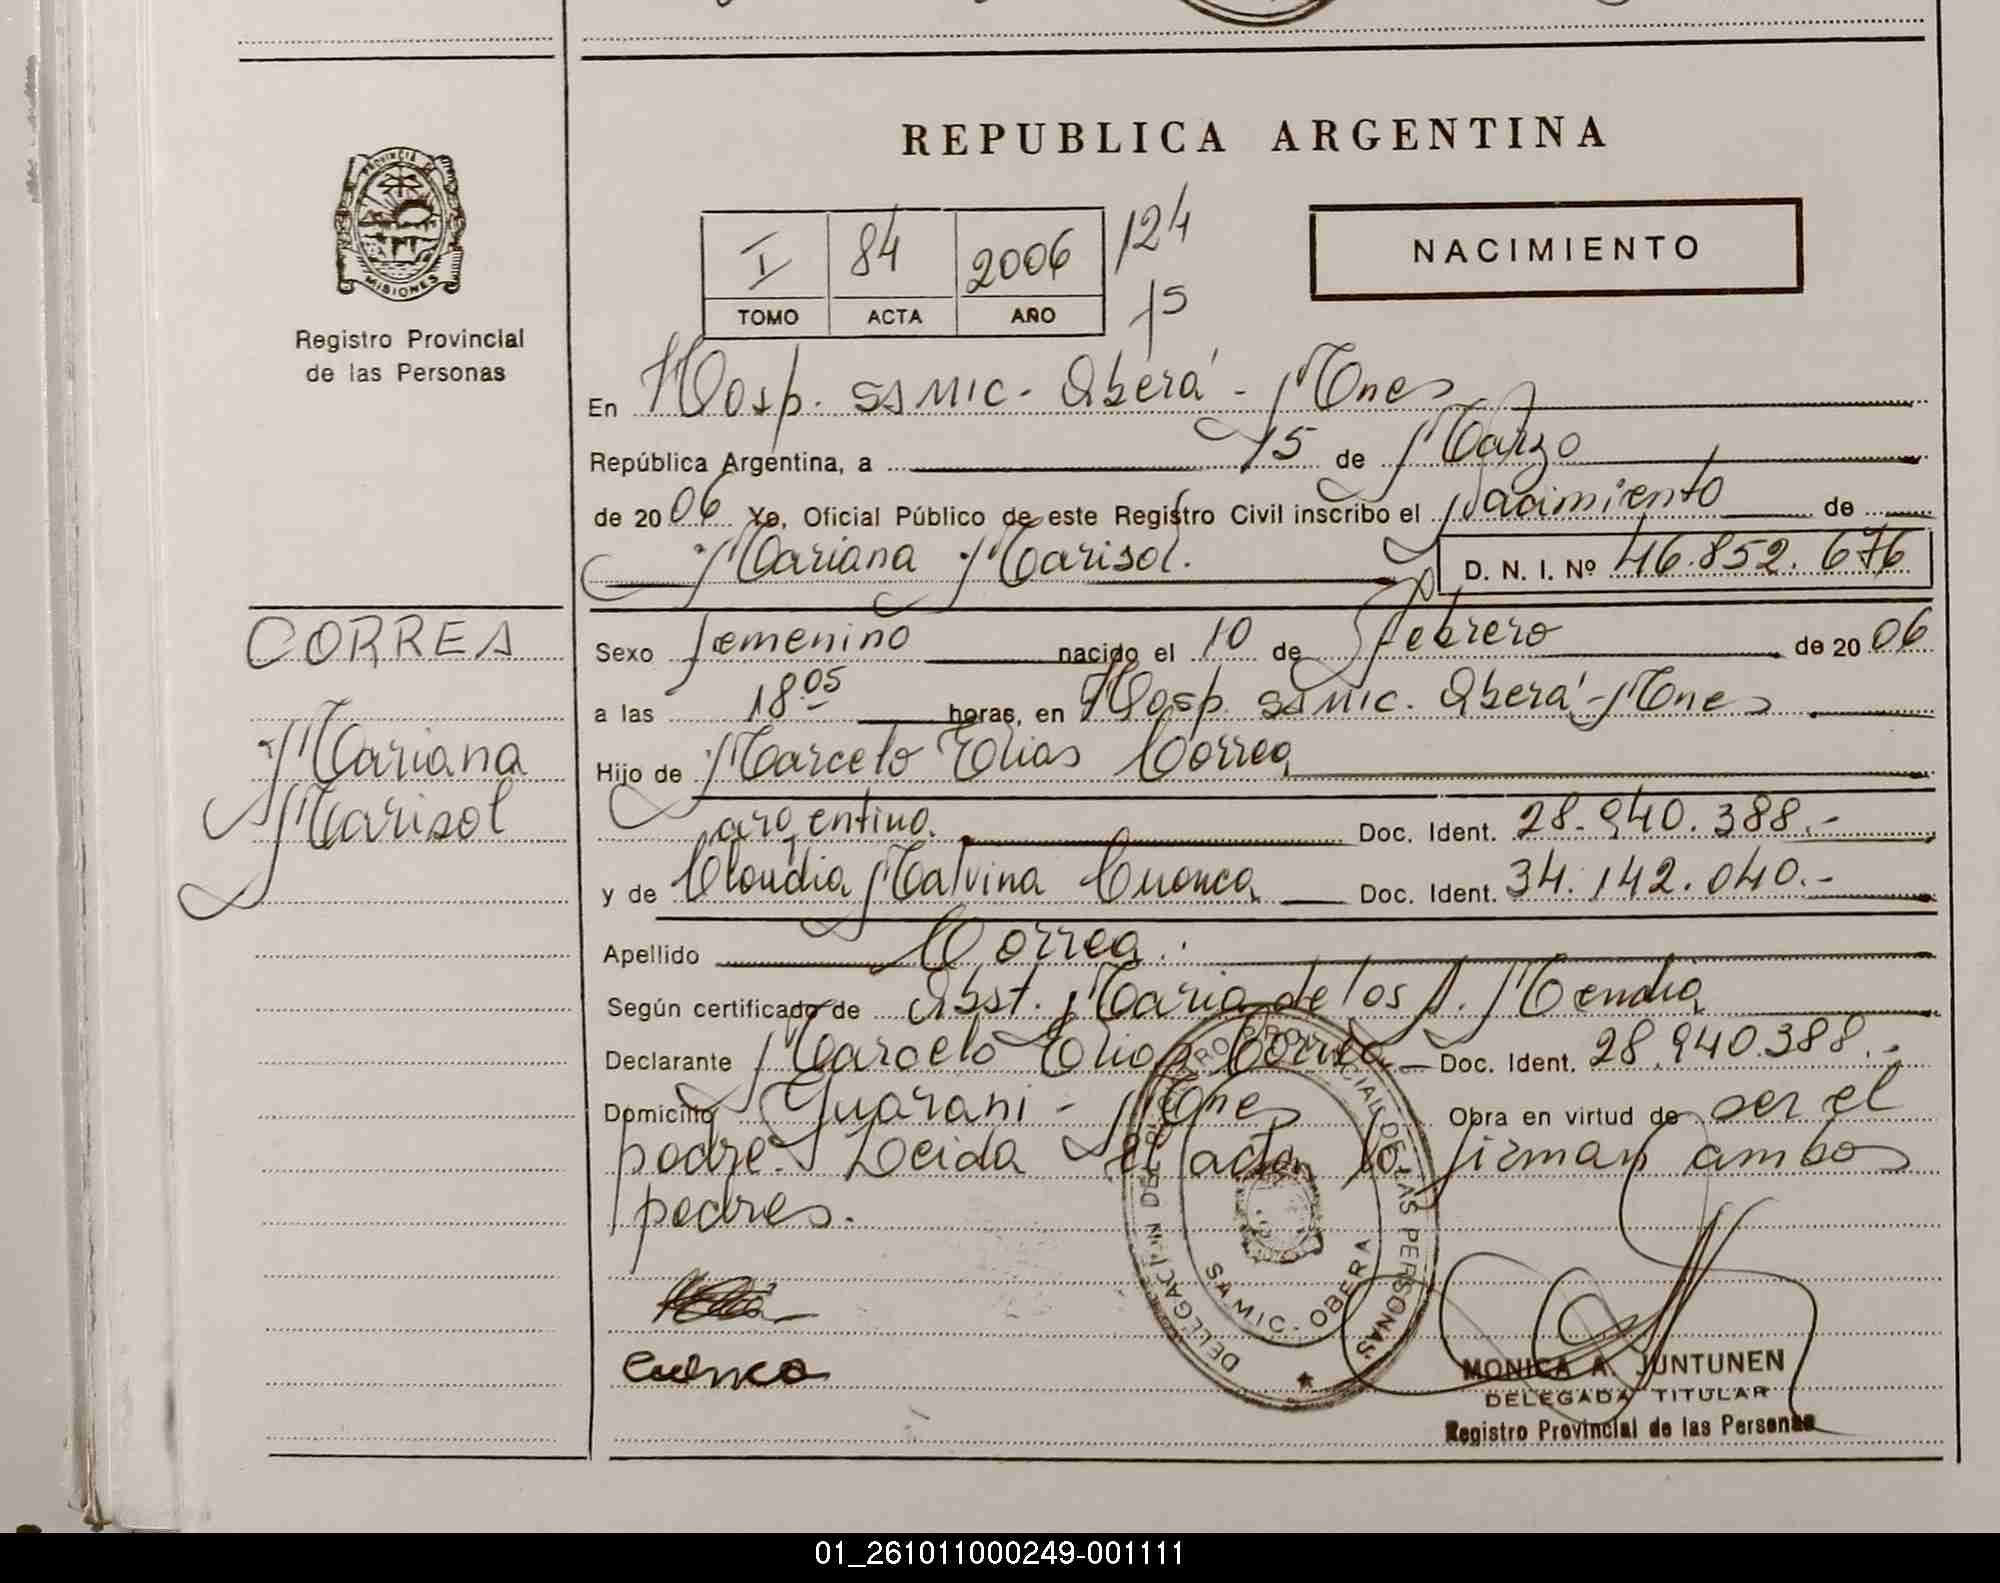 REPUBLICA ARGENTINA
PROVINCIA DE
MISIONES
Registro Provincial
de las Personas
I 84 2006 124
TOMO ACTA AÑO 15
NACIMIENTO
En Hosp. SAMIC - Oberá - Mnes
República Argentina, a 15 de Marzo
de 2006 Yo, Oficial Público de este Registro Civil inscribo el Nacimiento de
Mariana Marisol. D. N. I. Nº 46.852.676
CORREA
Mariana
Marisol
Sexo femenino nacido el 10 de febrero de 2006
a las 18 05 horas, en Hosp. SAMIC. Oberá - Mnes
Hijo de Marcelo Elias Correa
argentino. Doc. Ident. 28.940.388.-
y de Claudia Malvina Cuenca Doc. Ident. 34.142.040.-
Apellido Correa.
Según certificado de Obst. Maria de los A. Mendia
Declarante Marcelo Elias Correa Doc. Ident. 28.940.388.-
Domicilio Guarani - Mnes Obra en virtud de ser el
padre. Leida el acta lo firman ambos
padres.
Cuenca
REGISTRO PROVINCIAL DE LAS PERSONAS
DELEGACION
SAMIC - OBERA
MONICA A. JUNTUNEN
DELEGADA TITULAR
Registro Provincial de las Personas
01_261011000249-001111